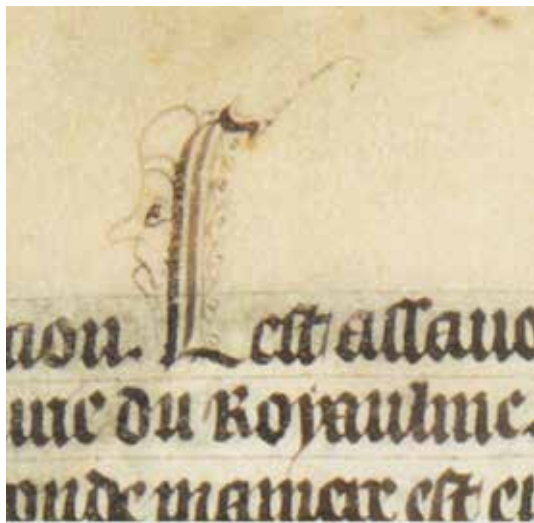 cion. Cest assauo
uie du Royaulme.
onde maniere est e